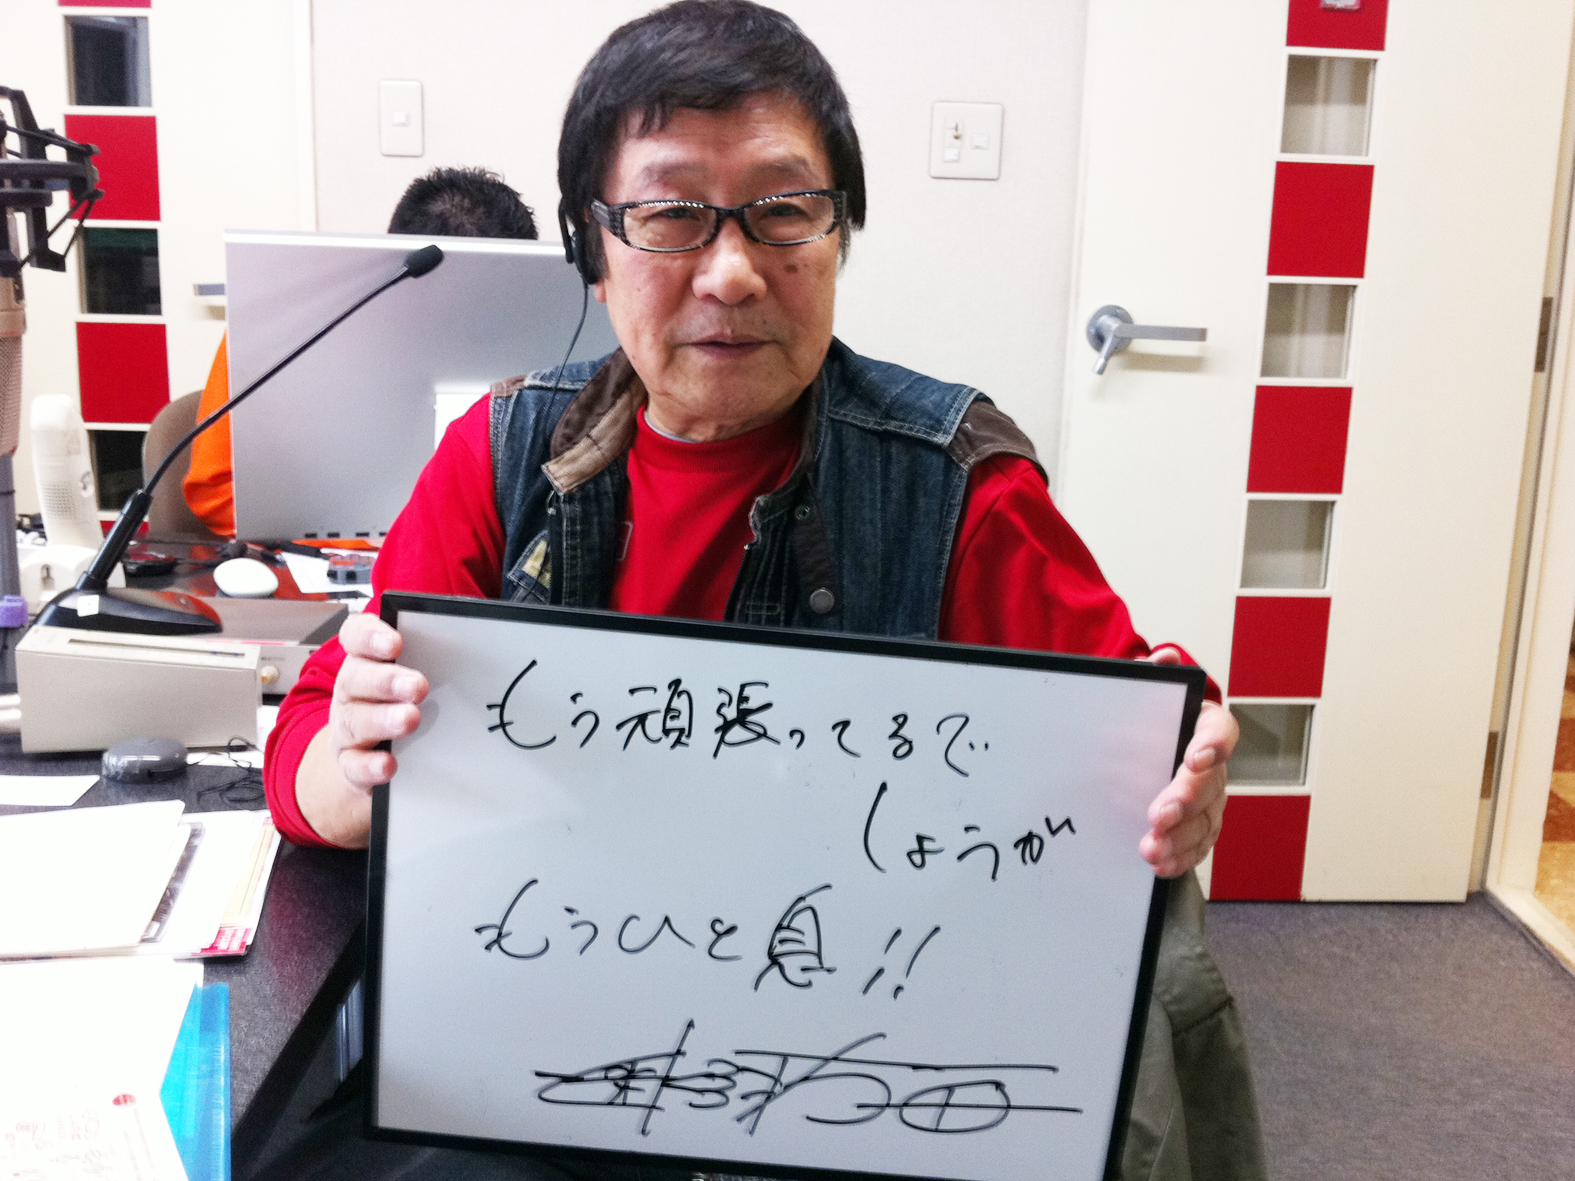 もう頑張ってるで
しょうが
もうひと息!!